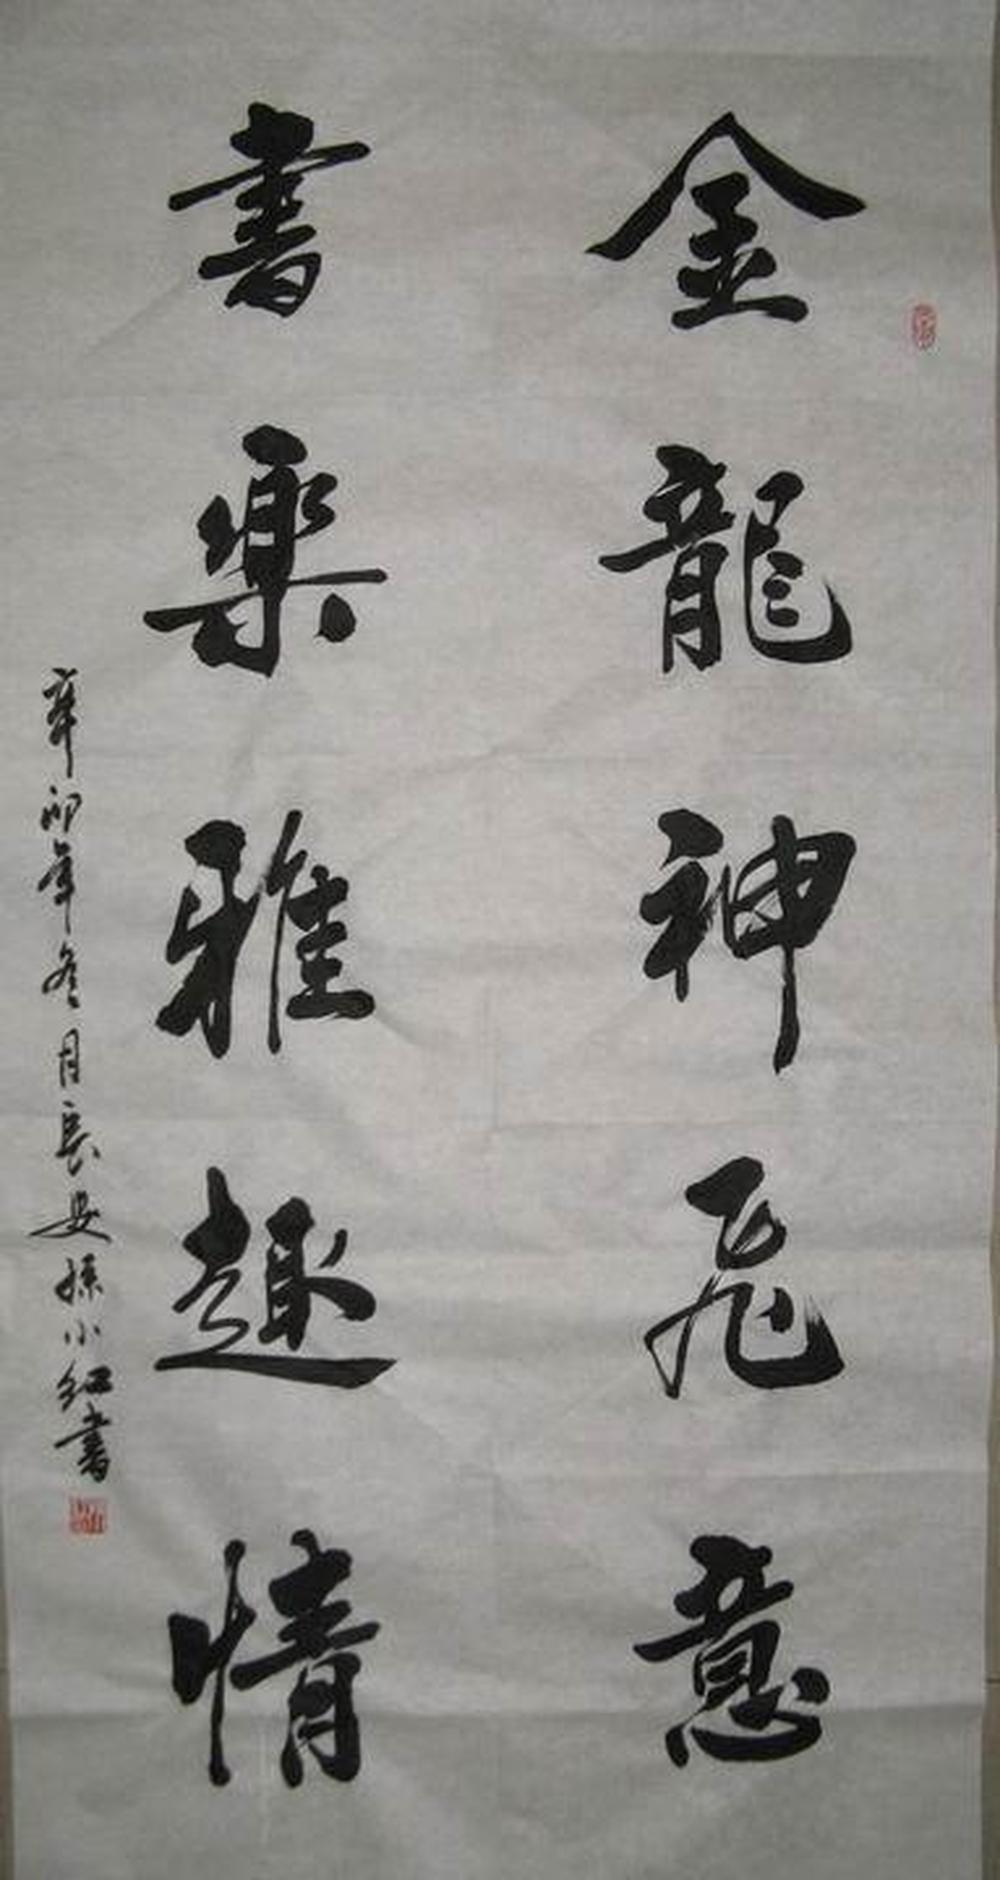 金龍神飛意
書樂雅趣情
辛卯年冬月長安孫小紅書